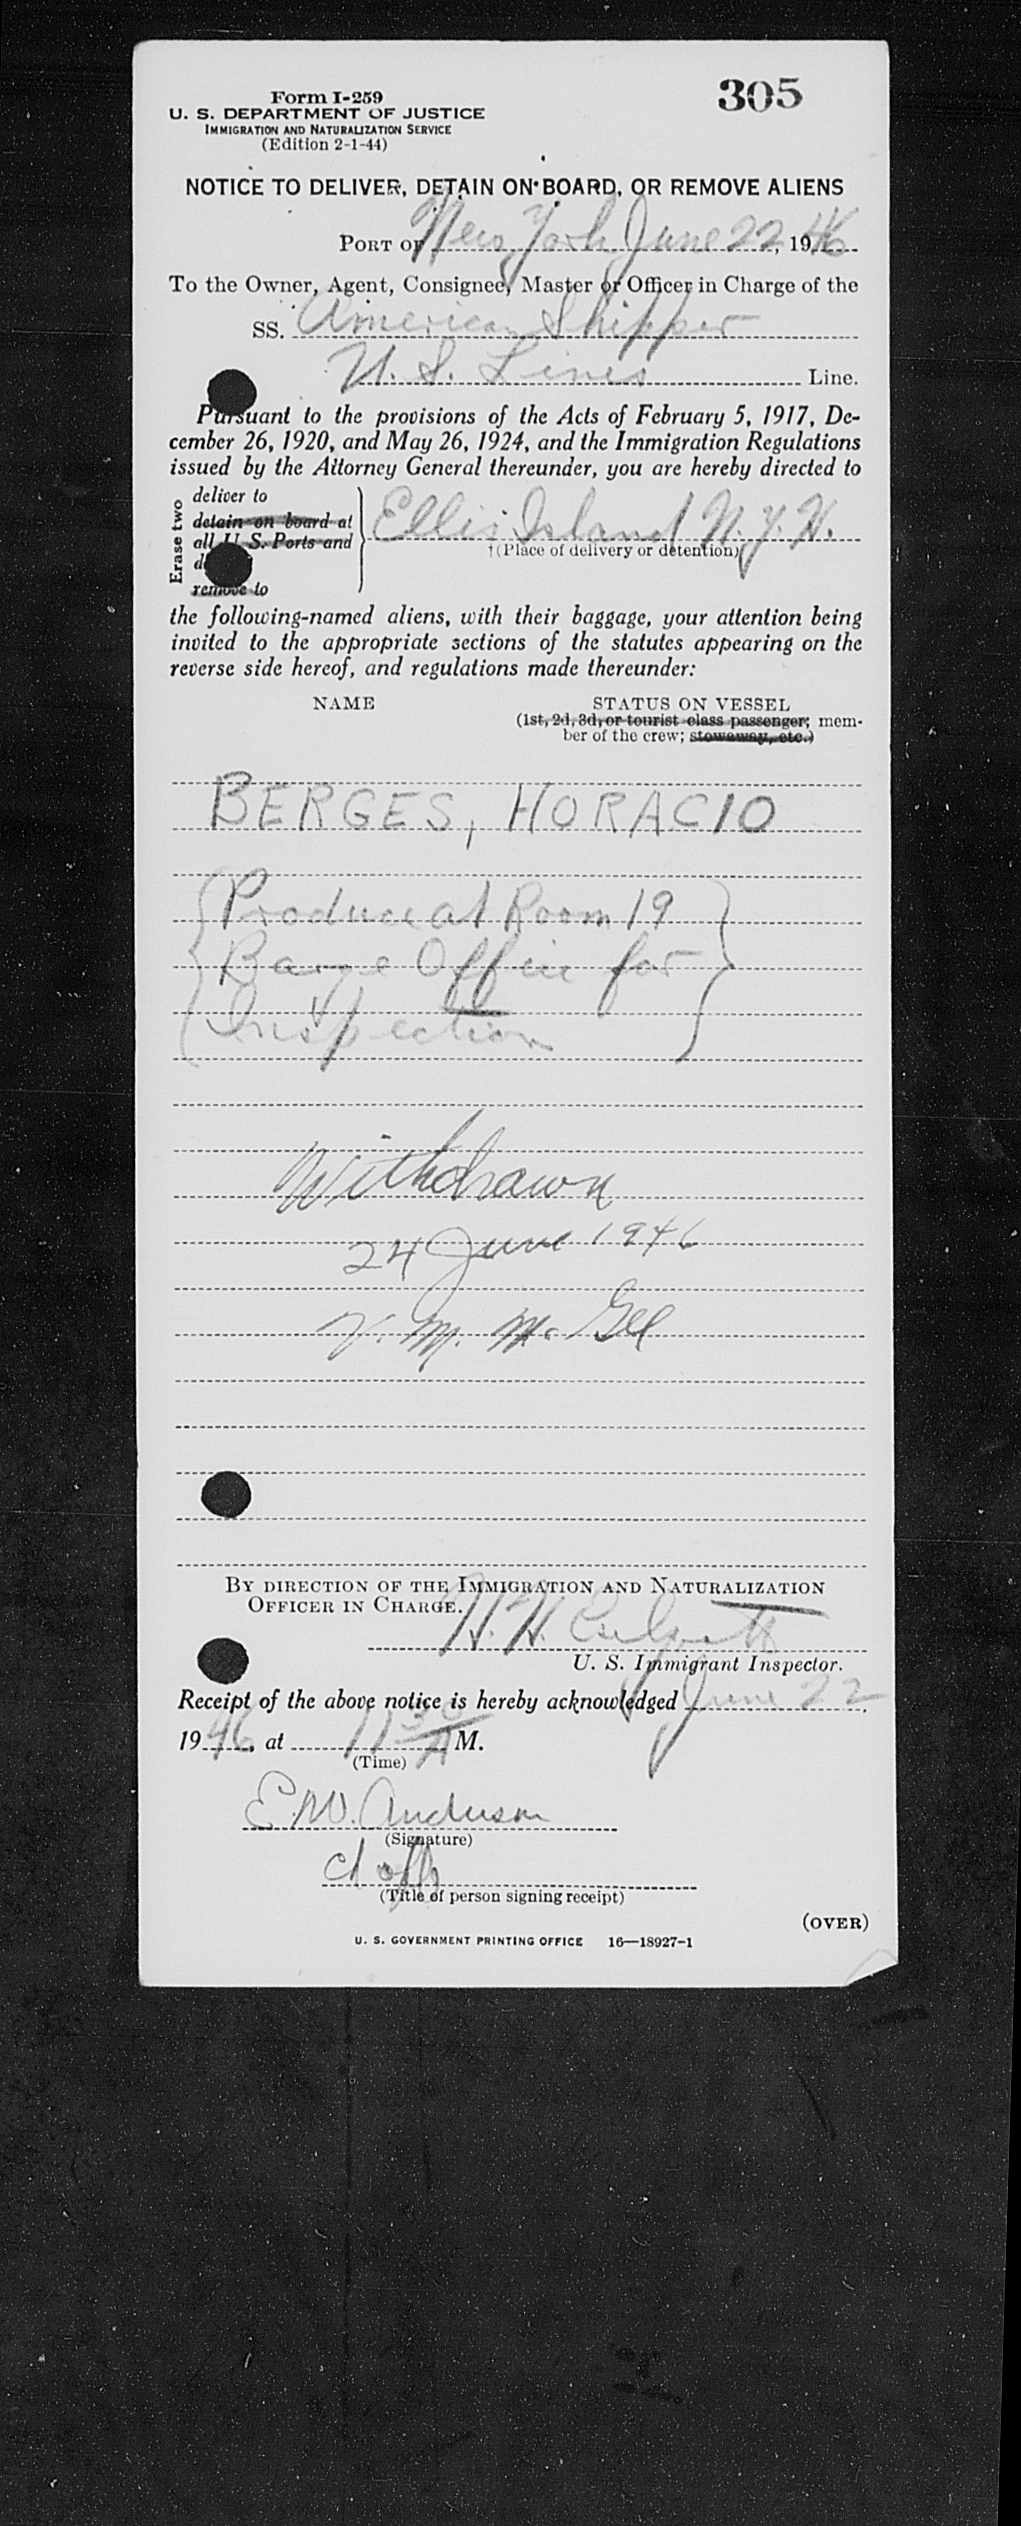 Form I-259
305
U. S. DEPARTMENT OF JUSTICE
IMMIGRATION AND NATURALIZATION SERVICE
(Edition 2-1-44)
NOTICE TO DELIVER, DETAIN ON BOARD, OR REMOVE ALIENS
PORT OF New York June 22, 1946
To the Owner, Agent, Consignee, Master or Officer in Charge of the
SS. American Shipper
U. S. Lines Line.
Pursuant to the provisions of the Acts of February 5, 1917, De-
cember 26, 1920, and May 26, 1924, and the Immigration Regulations
issued by the Attorney General thereunder, you are hereby directed to
Erase two
deliver to
detain on board at
all U. S. Ports and
remove to
Ellis Island N. Y. H.
†(Place of delivery or detention)
the following-named aliens, with their baggage, your attention being
invited to the appropriate sections of the statutes appearing on the
reverse side hereof, and regulations made thereunder:
NAME
STATUS ON VESSEL
(1st, 2d, 3d, or tourist class passenger; mem-
ber of the crew; stowaway, etc.)
BERGES, HORACIO
Produce at Room 19
Barge Office for
Inspection
Withdrawn
24 June 1946
V. M. McGee
BY DIRECTION OF THE IMMIGRATION AND NATURALIZATION
OFFICER IN CHARGE.
H. H.
U. S. Immigrant Inspector.
Receipt of the above notice is hereby acknowledged June 22,
1946, at 11 30 A M.
(Time)
E. W. Anderson
(Signature)
(Title of person signing receipt)
(OVER)
U. S. GOVERNMENT PRINTING OFFICE 16—18927-1